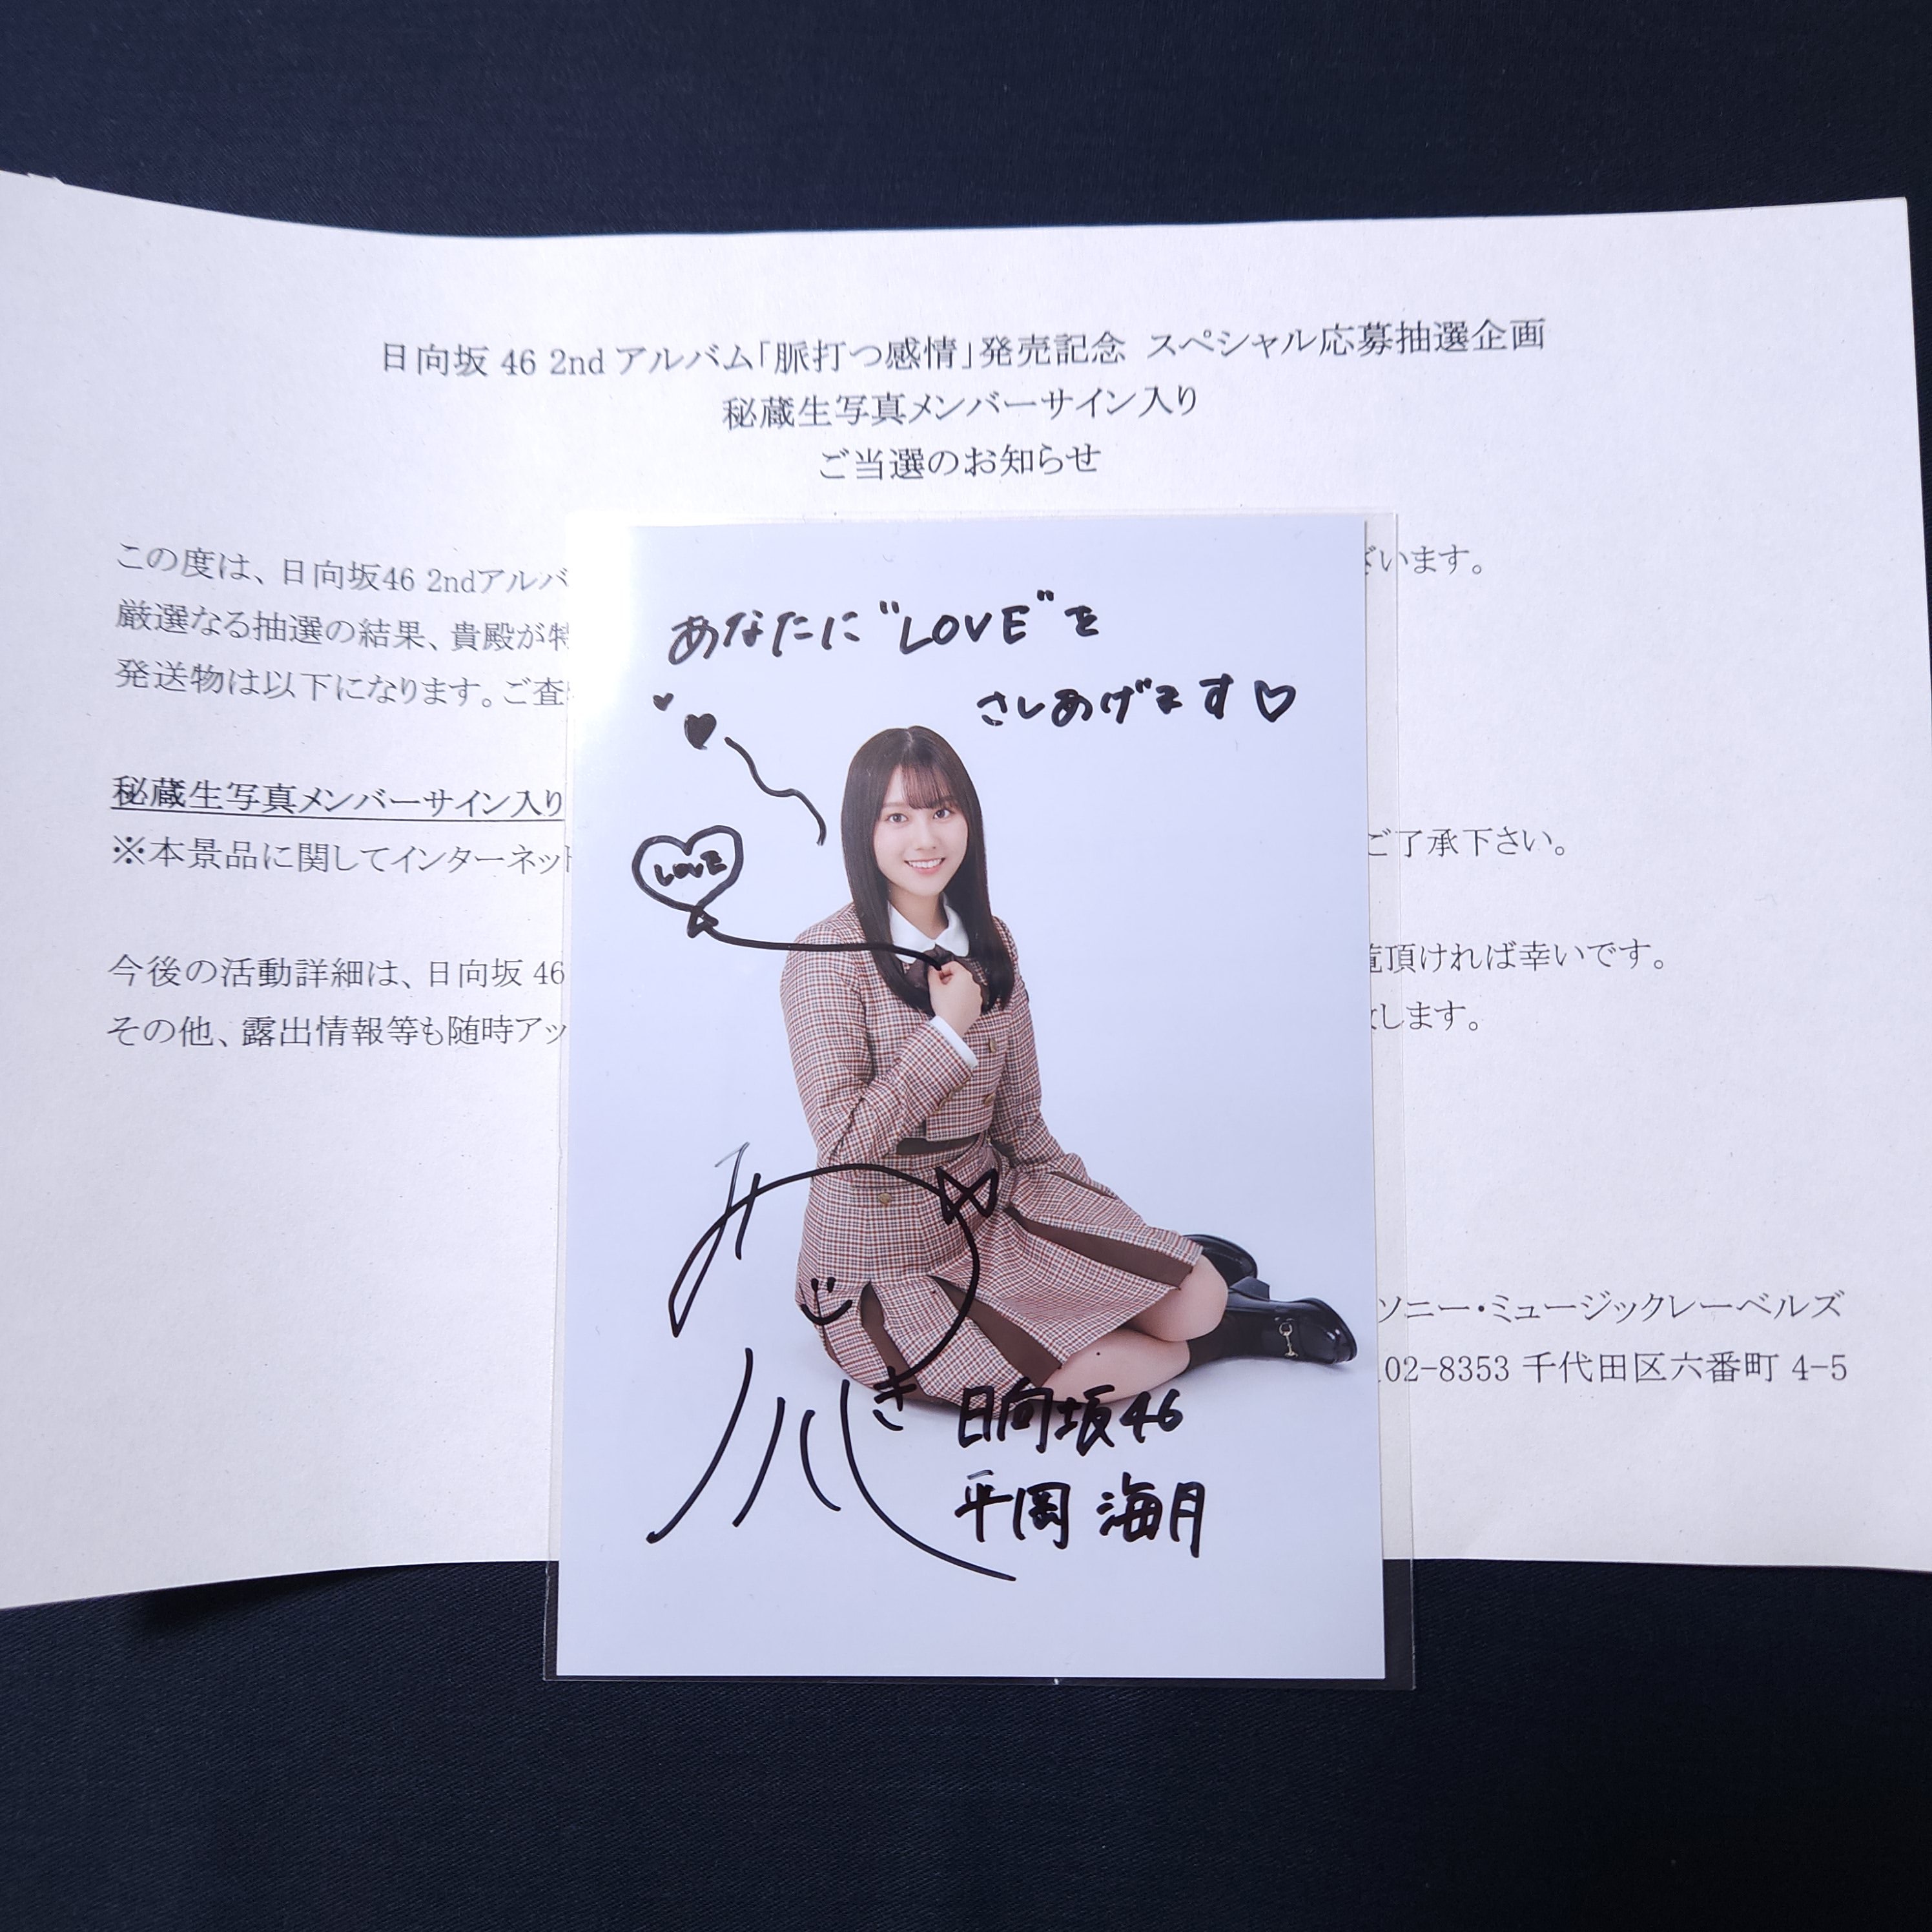 日向坂 46 2nd アルバム「脈打つ感情」発売記念 スペシャル応募抽選企画
秘蔵生写真メンバーサイン入り
ご当選のお知らせ
この度は、日向坂46 2ndアルバ
ざいます。
厳選なる抽選の結果、貴殿が特
発送物は以下になります。ご査
秘蔵生写真メンバーサイン入り
※本景品に関してインターネッ
ご了承下さい。
今後の活動詳細は、日向坂 46
頂ければ幸いです。
その他、露出情報等も随時アッ
します。
ソニー・ミュージックレーベルズ
02-8353 千代田区六番町 4-5
あなたに"LOVE"を
さしあげます♡
LOVE
日向坂46
平岡 海月